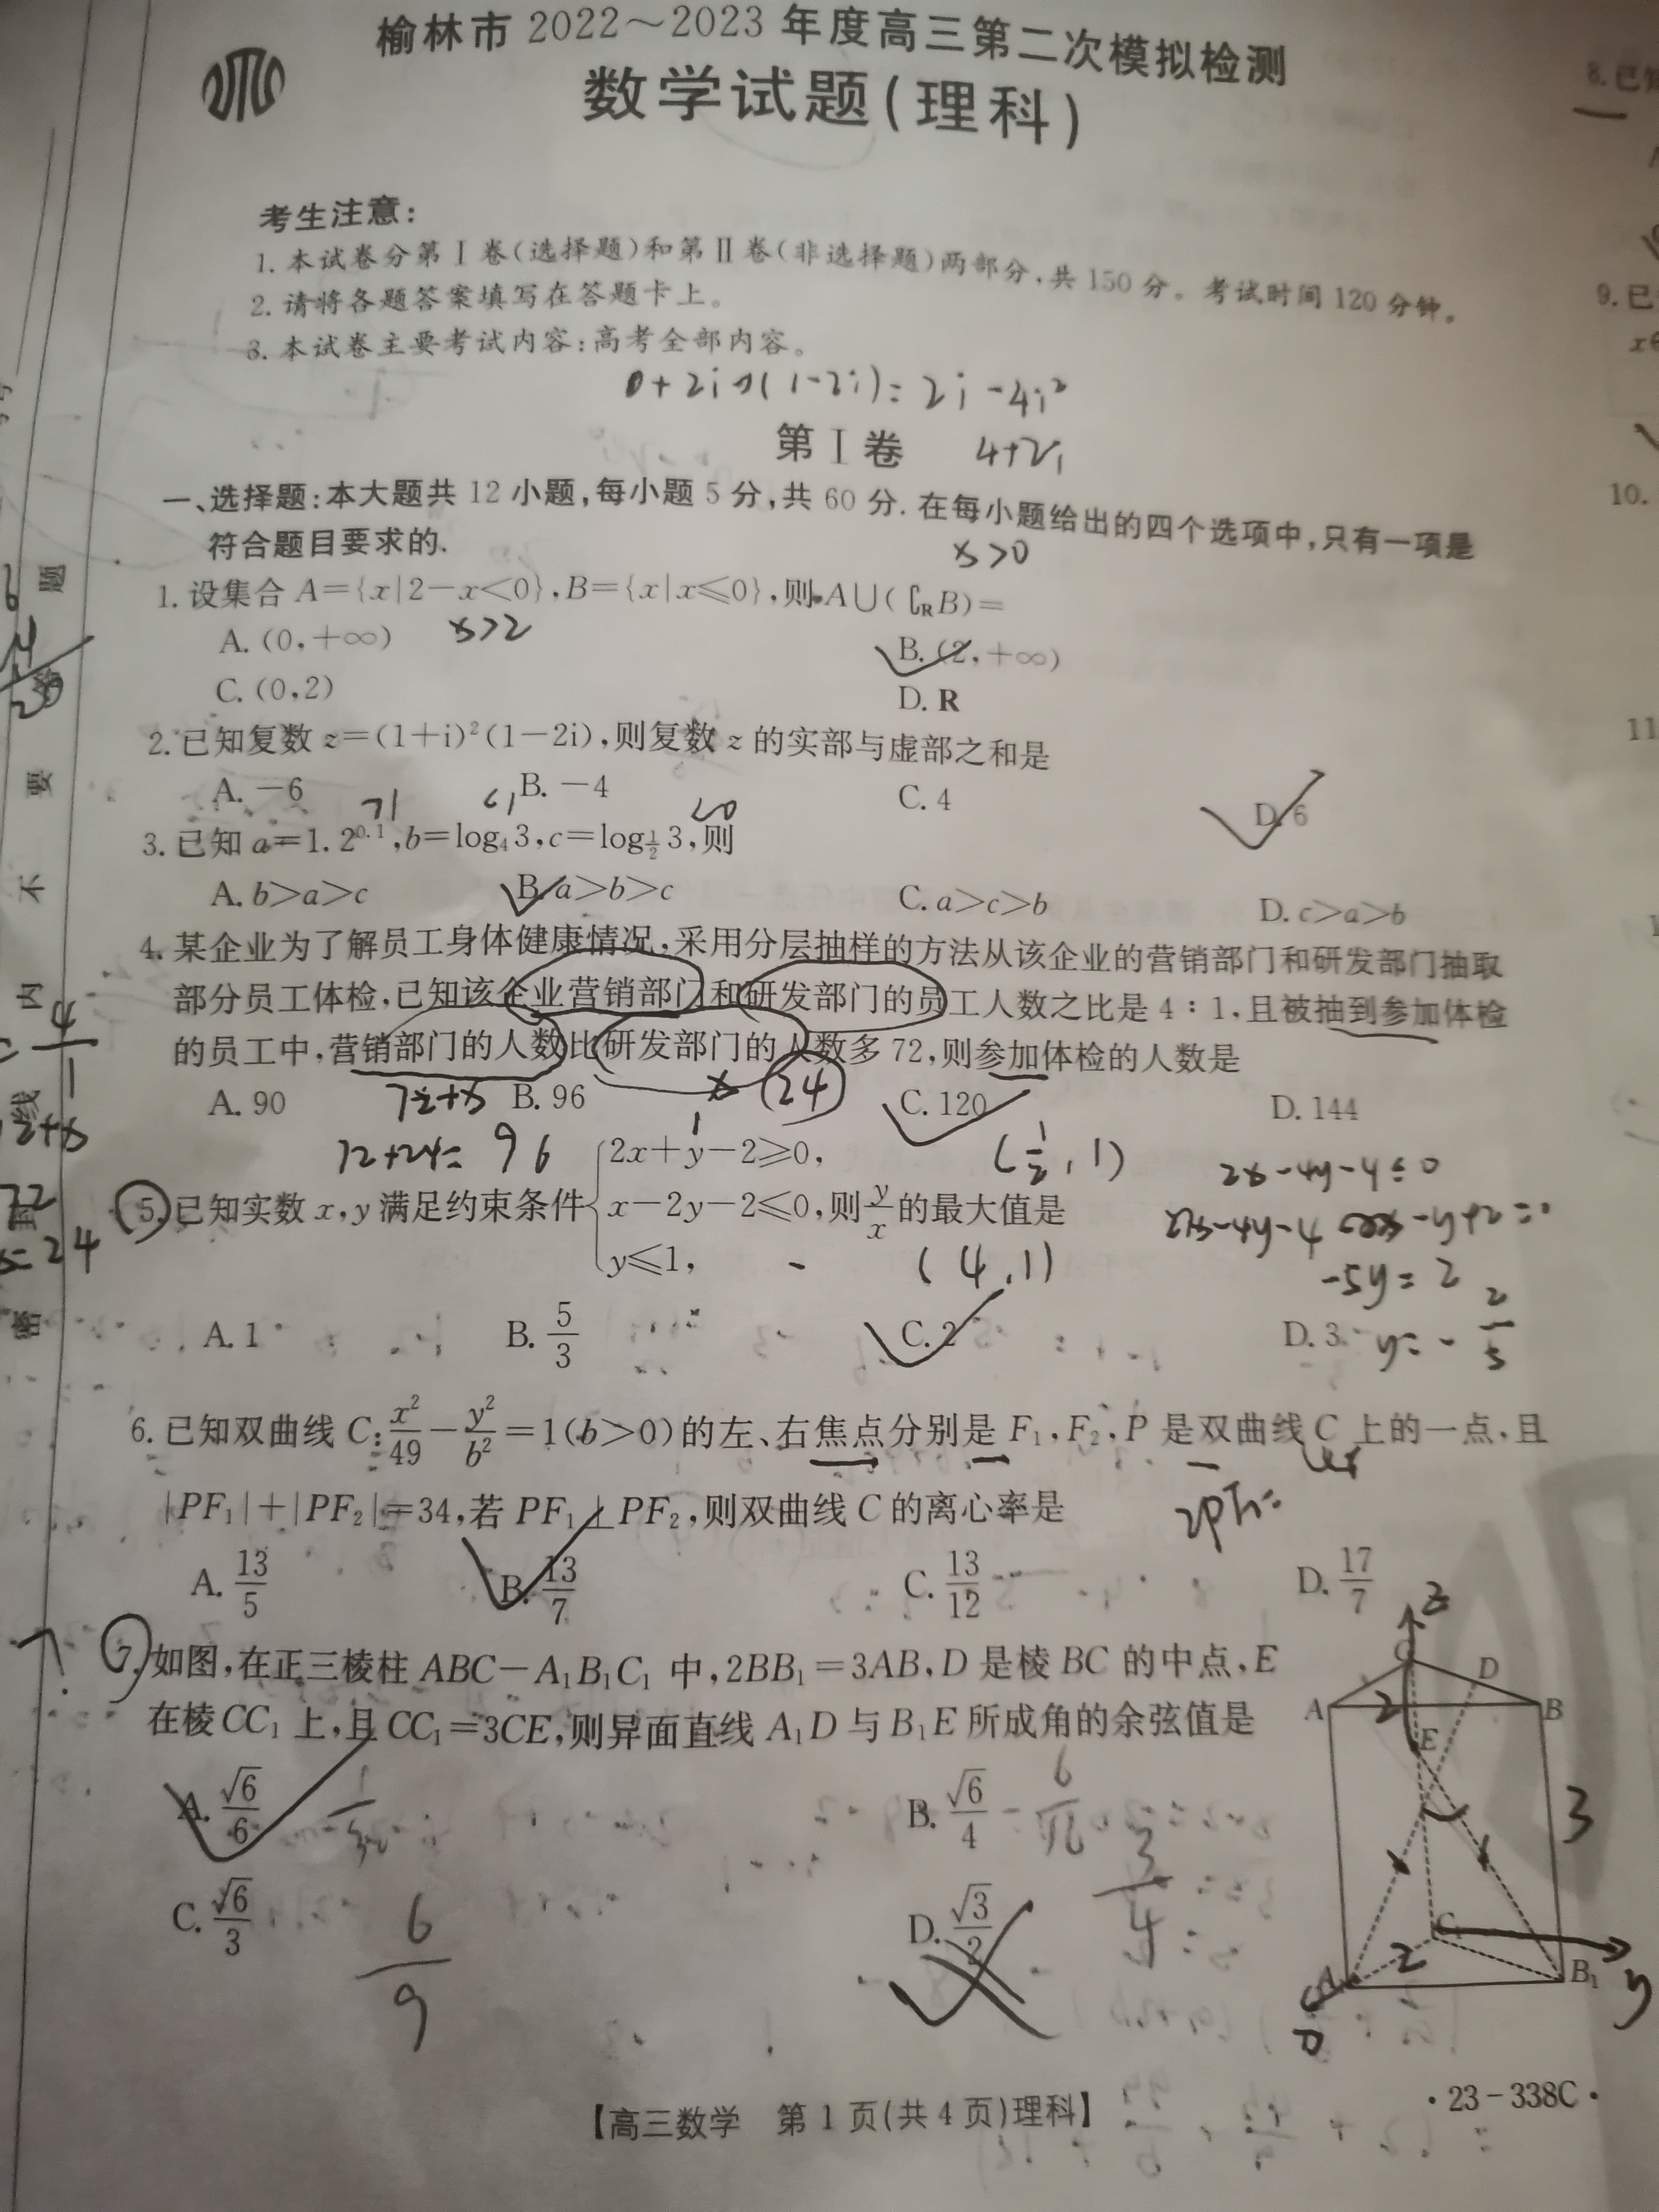 榆林市 2022～2023 年度高三第二次模拟检测
数学试题(理科)
考生注意:
1. 本试卷分第Ⅰ卷(选择题)和第Ⅱ卷(非选择题)两部分,共 150 分。考试时间 120 分钟。
2. 请将各题答案填写在答题卡上。
3. 本试卷主要考试内容:高考全部内容。
第Ⅰ卷
4+2i
一、选择题:本大题共 12 小题,每小题 5 分,共 60 分. 在每小题给出的四个选项中,只有一项是
符合题目要求的.
x>0
1. 设集合 A={x|2-x<0},B={x|x≤0},则 A∪(∁RB)=
A. (0,+∞)
x>2
B. (2,+∞)
C. (0,2)
D. R
2. 已知复数 z=(1+i)²(1-2i),则复数 z 的实部与虚部之和是
A. -6
B. -4
C. 4
D. 6
>1
<1
<0
3. 已知 a=1.2^0.1,b=log₄3,c=log_{1/2}3,则
A. b>a>c
B. a>b>c
C. a>c>b
D. c>a>b
4. 某企业为了解员工身体健康情况,采用分层抽样的方法从该企业的营销部门和研发部门抽取
部分员工体检,已知该企业营销部门和研发部门的员工人数之比是 4∶1,且被抽到参加体检
的员工中,营销部门的人数比研发部门的人数多 72,则参加体检的人数是
A. 90
72+x
B. 96
x
24
C. 120
D. 144
72+24=96
(1/2,1)
2x-4y-4≤0
5. 已知实数 x,y 满足约束条件{2x+y-2≥0, x-2y-2≤0, y≤1, 则 y/x 的最大值是
(4,1)
-5y=2
A. 1
B. 5/3
C. 2
D. 3
y=-2/5
6. 已知双曲线 C:x²/49-y²/b²=1(b>0)的左、右焦点分别是 F₁,F₂,P 是双曲线 C 上的一点,且
|PF₁|+|PF₂|=34,若 PF₁⊥PF₂,则双曲线 C 的离心率是
A. 13/5
B. 13/7
C. 13/12
D. 17/7
7. 如图,在正三棱柱 ABC-A₁B₁C₁ 中,2BB₁=3AB,D 是棱 BC 的中点,E
在棱 CC₁ 上,且 CC₁=3CE,则异面直线 A₁D 与 B₁E 所成角的余弦值是
A. √6/6
B. √6/4
C. √6/3
D. √3/2
6/9
3/4
z
C
D
A
2
B
E
3
C₁
2
A
B₁
y
【高三数学 第 1 页(共 4 页)理科】
·23-338C·
8. 已知
9. 已
10.
11
题
答
要
不
内
线
封
密
4/1
x=24